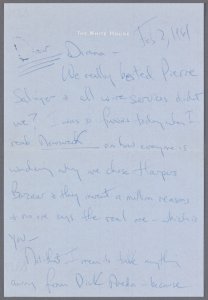 THE WHITE HOUSE
Feb 2, 1961
Dear
Diana –
We really bested Pierre
Salinger + all wire services didn't
we? I was so furious today when I
read Newsweek on how everyone is
wondering why we chose Harper's
Bazaar + they invent a million reasons
+ no one says the real one – which is
you –
Not that I mean to take anything
away from Dick Avedon – because